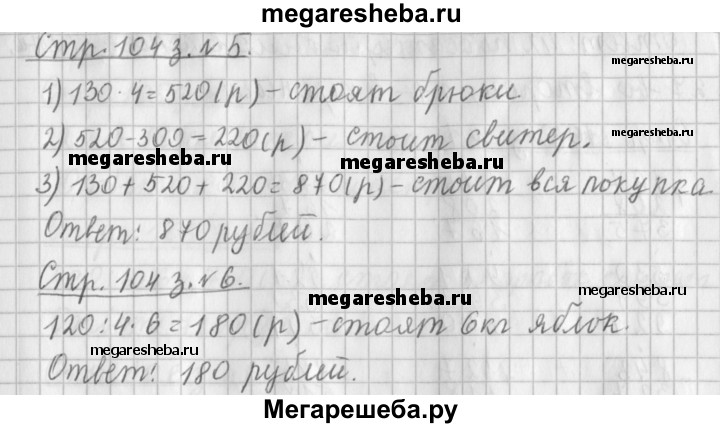 megaresheba.ru
Стр. 104 з. № 5.
megaresheba.ru
1) 130 · 4 = 520 (р) - стоят брюки
2) 520 - 300 = 220 (р) - стоит свитер.
megaresheba.ru
megaresheba.ru
megaresheba.ru
3) 130 + 520 + 220 = 870 (р) - стоит вся покупка.
Ответ: 870 рублей.
megaresheba.ru
Стр. 104 з. № 6.
megaresheba.ru
120 : 4 · 6 = 180 (р) - стоят 6 кг яблок.
megaresheba.ru
megaresheba.ru
Ответ: 180 рублей.
Мегарешеба.ру